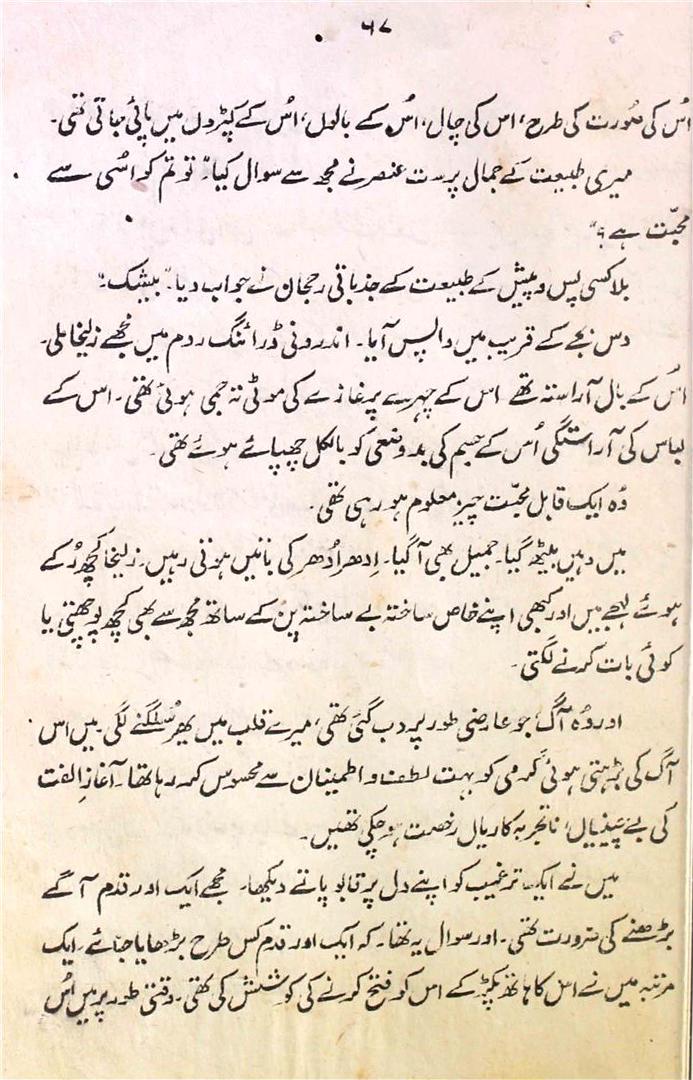 ۶۷
اُس کی صُورت کی طرح، اس کی چال، اُس کے بالوں، اُس کے کپڑوں میں پائی جاتی تھی۔
میری طبیعت کے جمال پرست عنصر نے مجھ سے سوال کیا۔ تو تم کو اسُی سے
محبّت ہے؟"
بلا کسی پس و پیش کے طبیعت کے جذباتی رجحان نے جواب دیا۔ "بیشک"۔
دس بجے کے قریب میں واپس آیا۔ اندرونی ڈرائنگ روم میں مجھے زلیخا ملی۔
اُس کے بال آراستہ تھے اس کے چہرے پر غازے کی موٹی تہ جمی ہوئی تھی۔ اس کے
لباس کی آراستگی اُس کے جسم کی بدوضعی کو بالکل چھپائے ہوئے تھی۔
وُہ ایک قابل محبّت چیز معلوم ہو رہی تھی۔
میں وہیں بیٹھ گیا۔ جمیل بھی آ گیا۔ اِدھر اُدھر کی باتیں ہوتی رہیں۔ زلیخا کچھ رُکے
ہوئے لہجے میں اور کبھی اپنے خاص ساختہ بے ساختہ پن کے ساتھ مجھ سے بھی کچھ پوچھتی یا
کوئی بات کرنے لگتی۔
اور وُہ آگ جو عارضی طور پر دب گئی تھی، میرے قلب میں پھر سُلگنے لگی۔ میں اس
آگ کی بڑھتی ہوئی گرمی کو بہت لطف و اطمینان سے محسوس کر رہا تھا۔ آغازِ الفت
کی بے چینیاں، ناتجربہ کاریاں رخصت ہو چکی تھیں۔
میں نے ایک ترغیب کو اپنے دل پر قابو پاتے دیکھا۔ مجھے ایک اور قدم آگے
بڑھنے کی ضرورت تھی۔ اور سوال یہ تھا۔ کہ ایک اور قدم کس طرح بڑھایا جائے۔ ایک
مرتبہ میں نے اس کا ہاتھ پکڑ کے اس کو فتح کرنے کی کوشش کی تھی۔ وقتی طور پر میں اُس